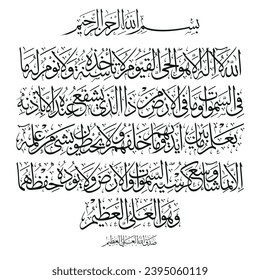 بسم الله الرحمن الرحيم
الله لا إله إلا هو الحي القيوم لا تأخذه سنة ولا نوم له ما
في السموات وما في الأرض من ذا الذي يشفع عنده إلا بإذنه
يعلم ما بين أيديهم وما خلفهم ولا يحيطون بشيء من علمه
إلا بما شاء وسع كرسيه السموات والأرض ولا يؤده حفظهما
وهو العلي العظيم
صدق الله العلي العظيم
shutterstock.com · 2395060119